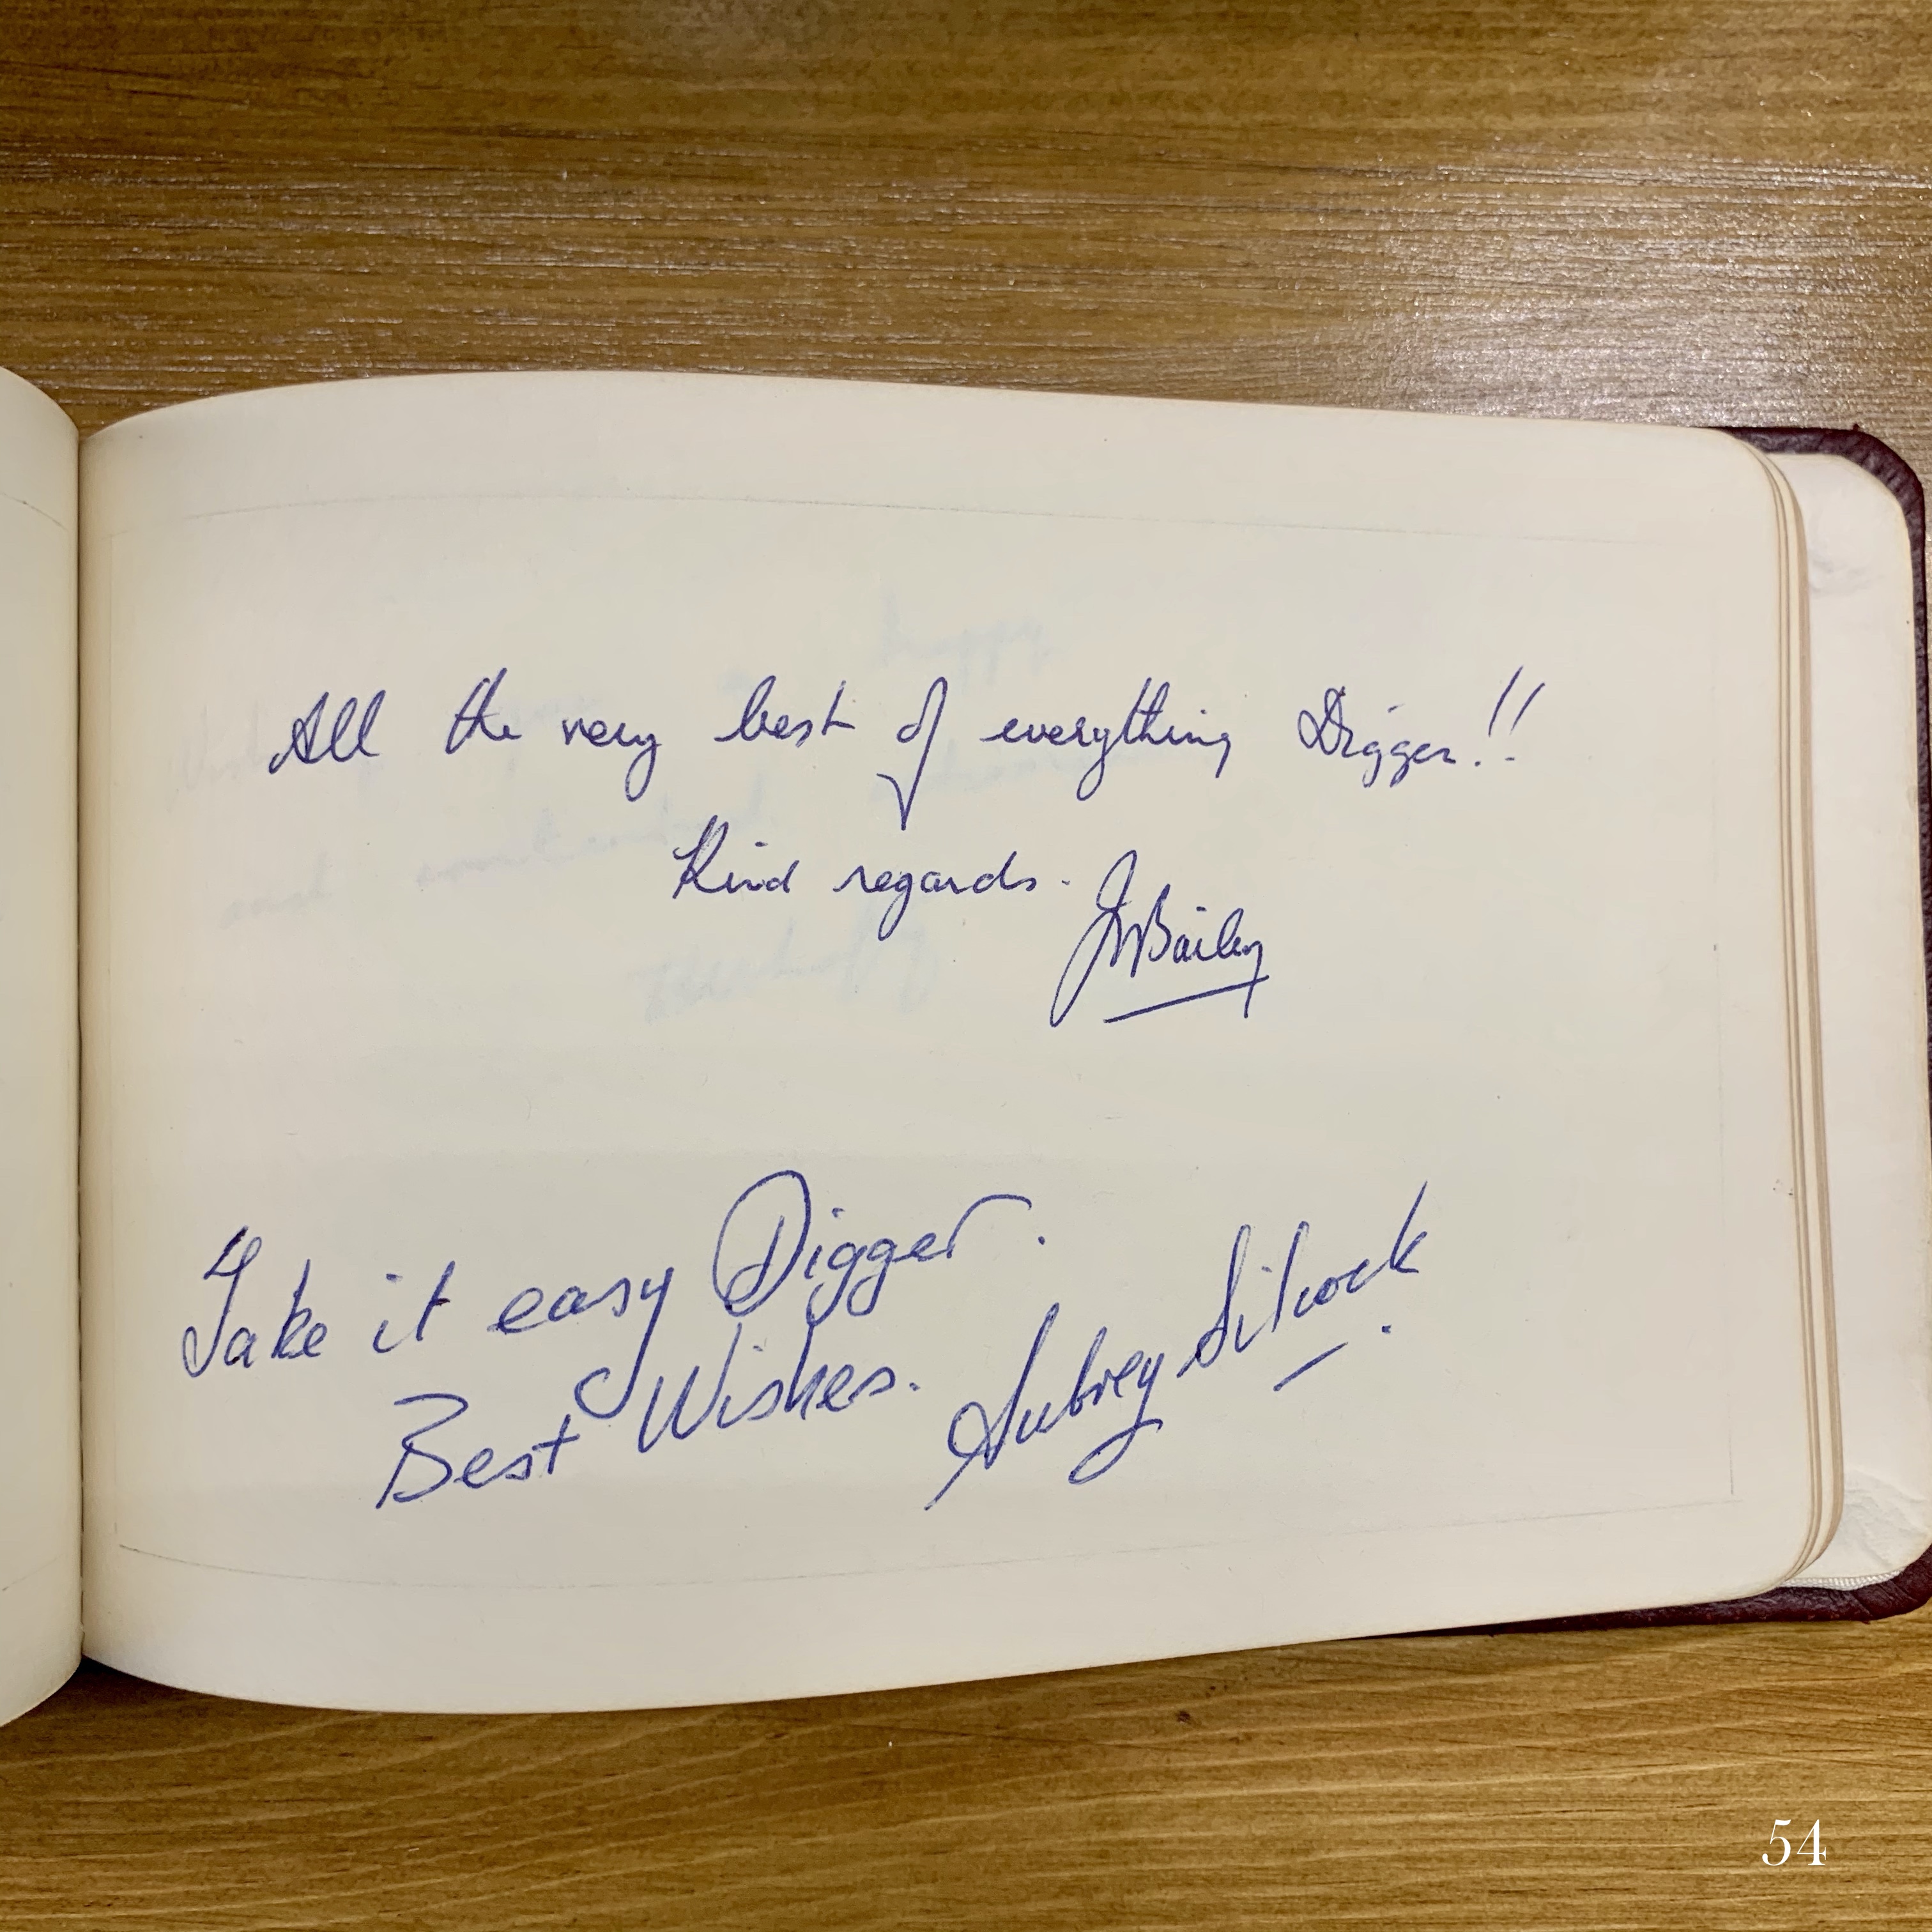 All the very best of everything Digger!!
Kind regards.
Bailey
Take it easy Digger.
Best Wishes.
Aubrey Silcock
54